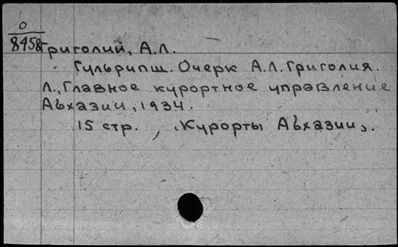 0
8458
Григолий, А.Л.
Гульрипш. Очерк А.Л. Григолия.
Л., Главное курортное управление
Абхазии, 1934.
15 стр., "Курорты Абхазии".